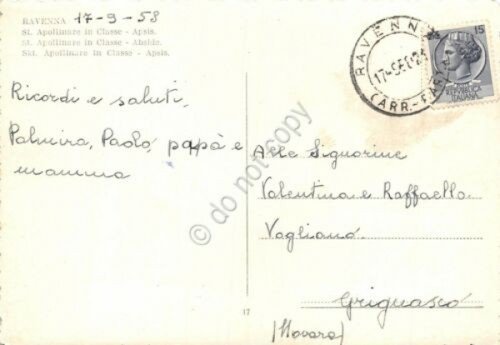 RAVENNA 17-9-58
St. Apollinare in Classe - Apsis.
St. Apollinare in Classe - Abside.
Skt. Apollinare in Classe - Apsis.
RAVENNA
17-SE
(ARR.-PAR
15
REPUBBLICA
ITALIANA
Ricordi e saluti,
Palmira, Paolo, papà e
mamma
Alle Signorine
Valentina e Raffaella
Vagliano
Grignasco
(Novara)
17
do not copy